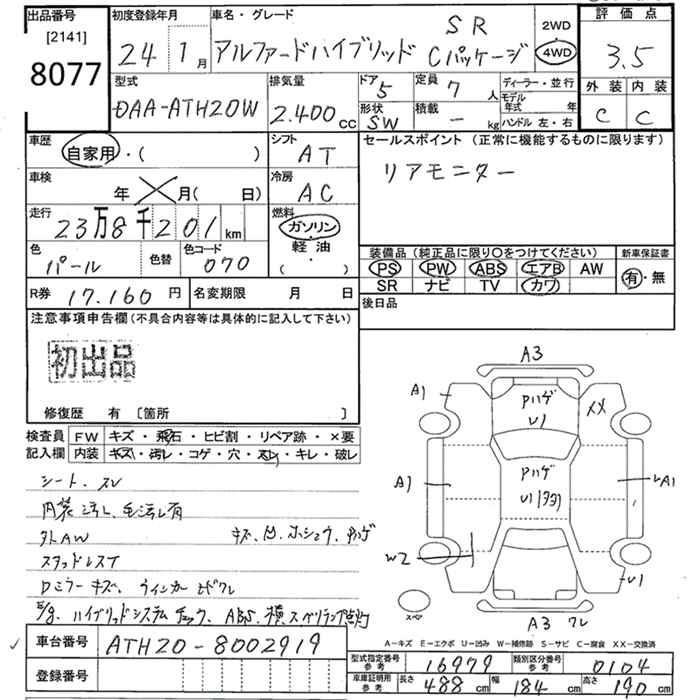 出品番号
[2141]
8077
初度登録年月
24 1月
車名・グレード
アルファードハイブリッド SR Cパッケージ
2WD
4WD
評価点
3.5
外装 内装
C C
型式
DAA-ATH20W
排気量
2.400cc
ドア
5
形状
SW
定員
7人
積載
- kg
ディーラー・並行
モデル年式 年
ハンドル 左・右
車歴
自家用・( )
シフト
AT
セールスポイント (正常に機能するものに限ります)
リアモニター
車検
年 月( 日)
冷房
AC
走行
23万8千201km
燃料
ガソリン
軽油
・( )
色
パール
色替
色コード
070
装備品 (純正品に限り〇をつけてください)
PS PW ABS エアB AW
SR ナビ TV カワ
新車保証書
有・無
R券 17.160円
名変期限 月 日
後日品
注意事項申告欄(不具合内容等は具体的に記入して下さい)
初出品
修復歴 有 [箇所 ]
検査員記入欄
FW キズ・飛石・ヒビ割・リペア跡・×要
内装 キズ・汚レ・コゲ・穴・スレ・キレ・破レ
シート.スレ
内装汚レ、毛汚レ有
外AW キズ、凹、ホシュウ、ハゲ
スタッドレスT
Dミラーキズ、ウインカー
ハイブリッドシステムチェック、ABS、横スベリランプ点灯
A3
A1
Pハゲ
U1
XX
A1
Pハゲ
U1
A1
W2
U1
スペア
A3 ワレ
A-キズ E-エクボ U-凹み W-補修跡 S-サビ C-腐食 XX-交換済
車台番号 ATH20-8002919
登録番号
型式指定番号 参考 16979
類別区分番号 参考 0104
車庫証明用 参考 長さ 488cm 幅 184cm 高さ 190cm